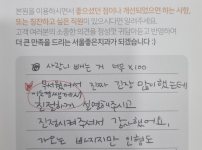 본원을 이용하시면서 좋으셨던 점이나 개선되었으면 하는 사항,
또는 칭찬하고 싶은 직원이 있으시다면 알려주세요.
고객 여러분의 소중한 의견을 정성껏 귀담아듣고 반영하여
더 큰 만족을 드리는 서울좋은치과가 되겠습니다 :)
사랑니 빼는 거 너무 x100
무서웠어서 진짜 긴장 많이했는데
친절하게 설명해주시고
진정시켜주셔서 감사했어요,